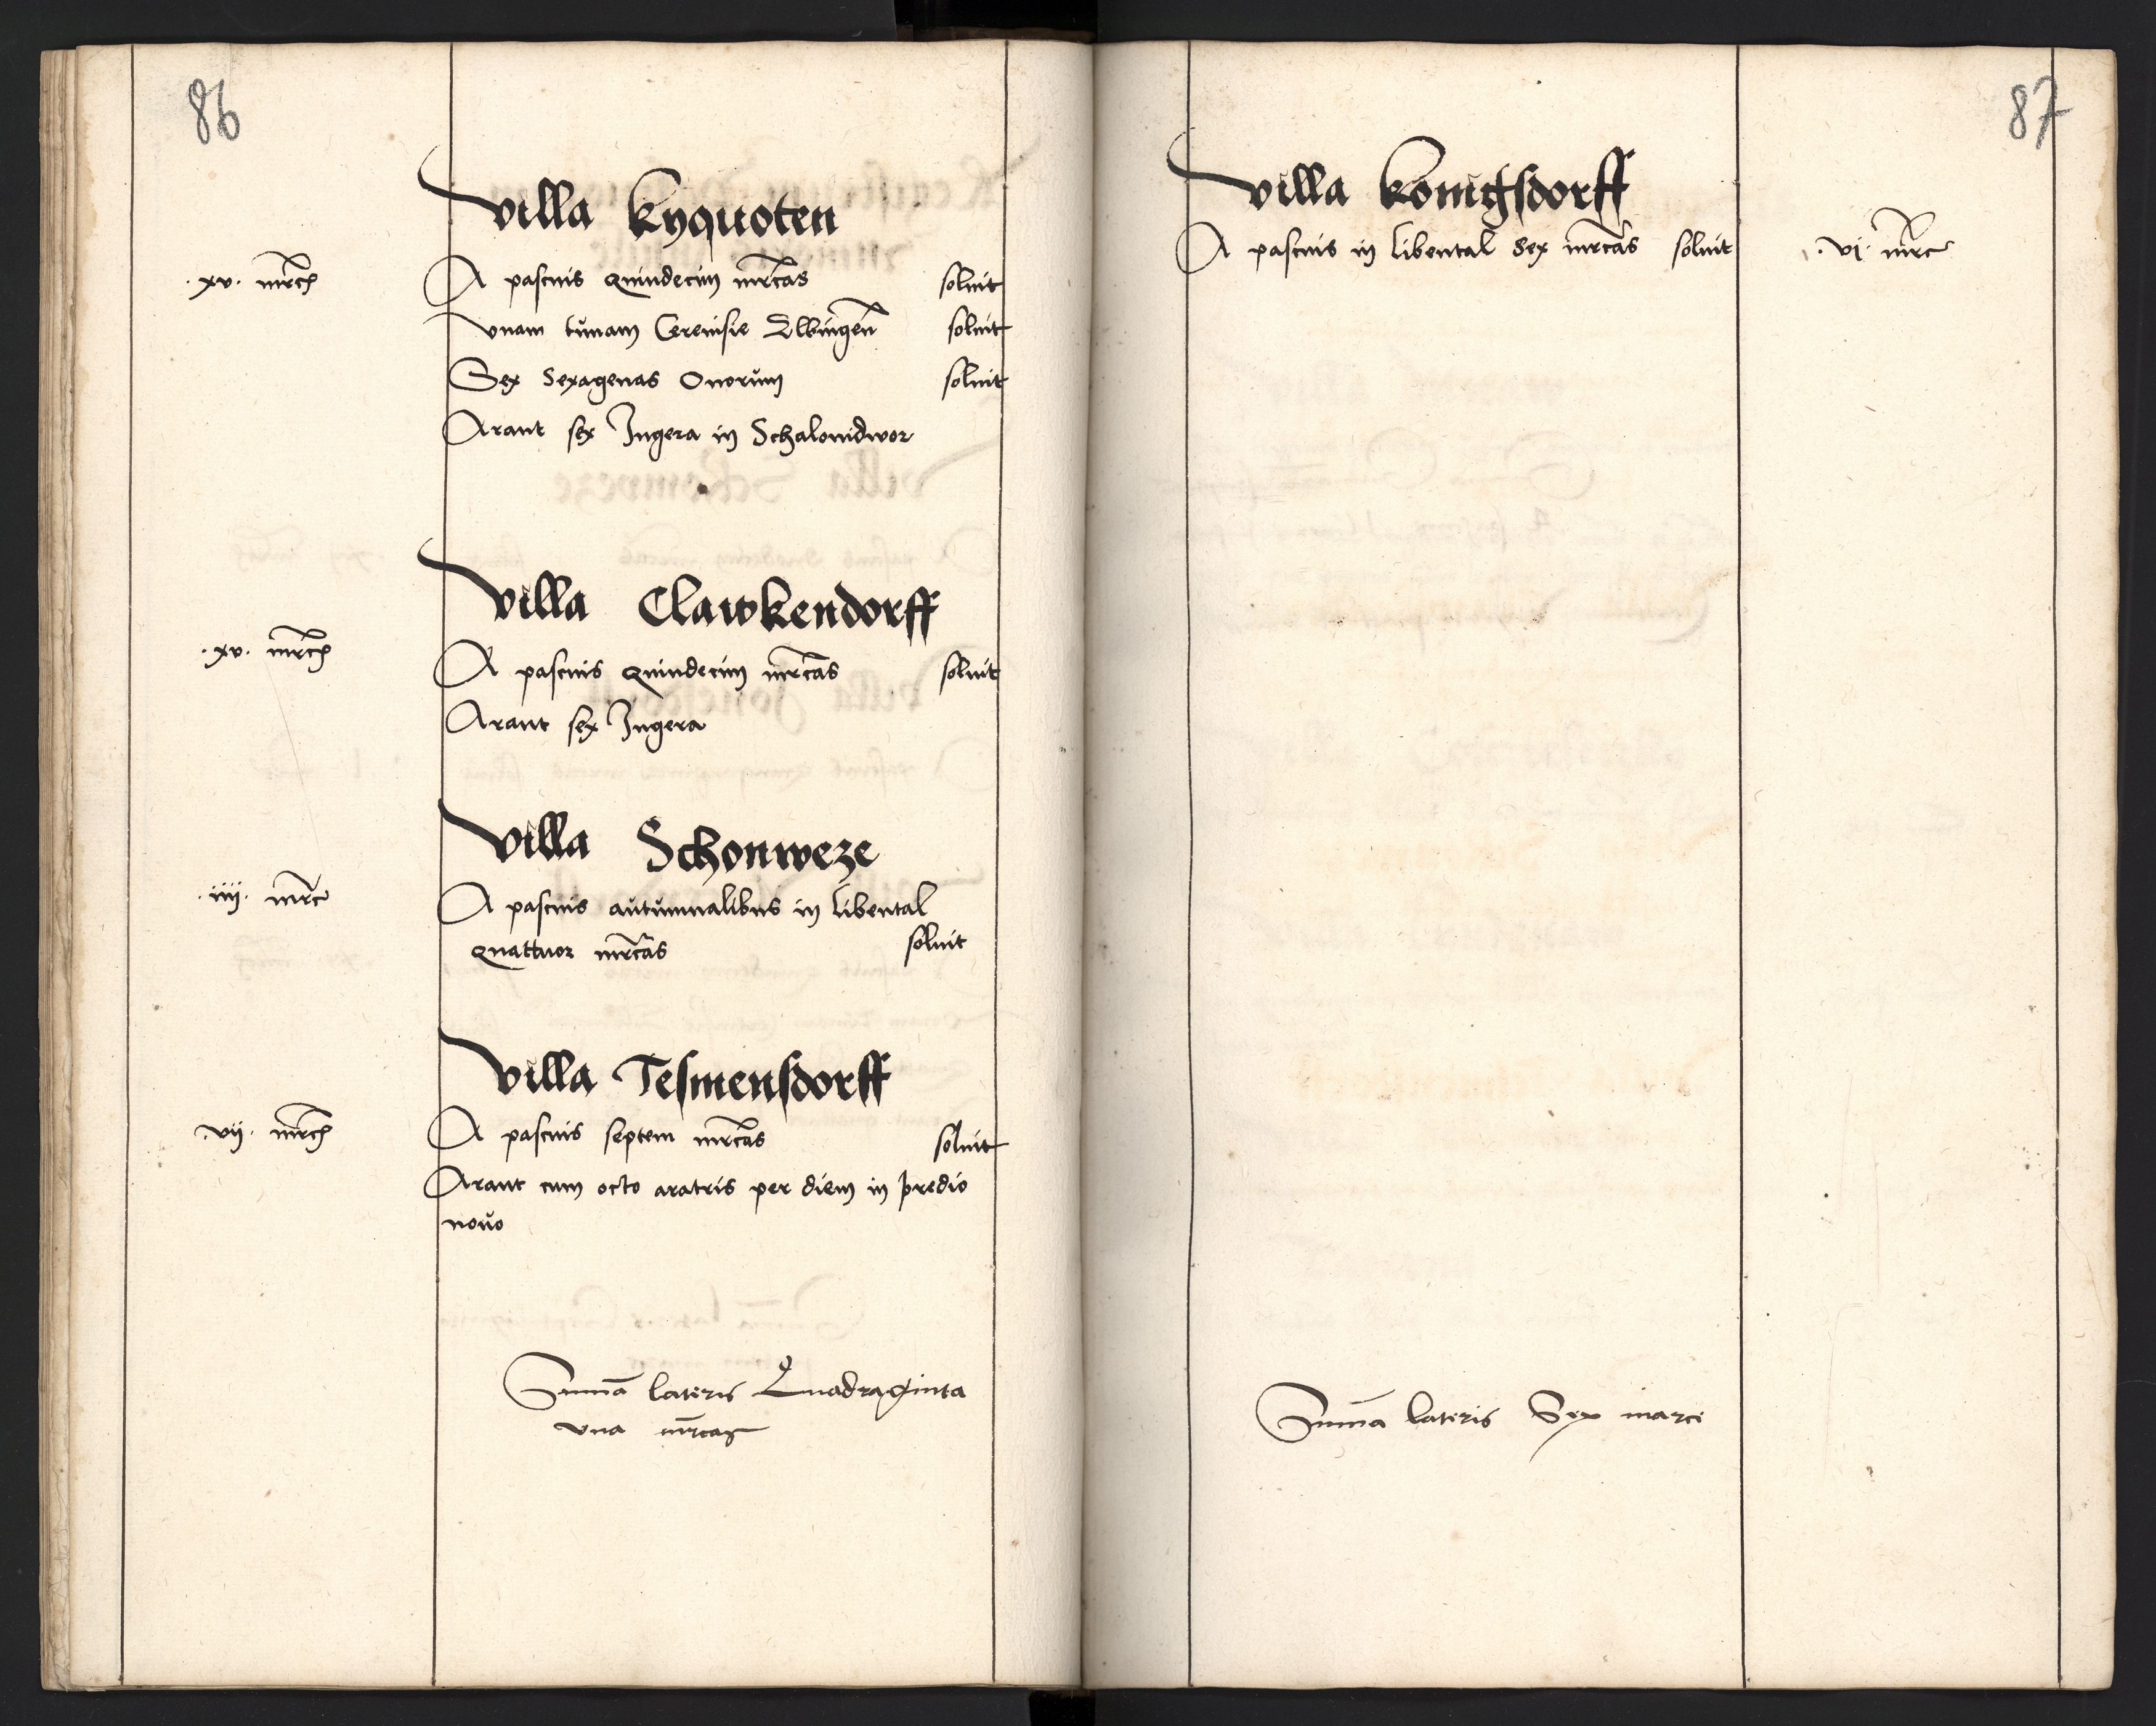 86
villa kyquoten
.xv. mrc̃
A pascuis quindecim mrcas soluit
vnam tunam Cereuisie Elbingen̄ soluit
Sex Sexagenas Ouorum soluit
Arant sex Iugera in Schalonidwor
villa Clawkendorff
.xv. mrc̃
A pascuis quindecim mrcas soluit
Arant sex Iugera
villa Schonweze
.iiij. mrc̃
A pascuis autumnalibus in libental
quattuor mrcas soluit
villa Tesmensdorff
.vij. mrc̃
A pascuis septem mrcas soluit
Arant cum octo aratris per diem in predio
nouo
Sum̄a lateris Quadraginta
vna mrcas
87
villa konigsdorff
A pascuis in libental Sex mrcas soluit .vj. mrc̃
Sum̄a lateris Sex marce